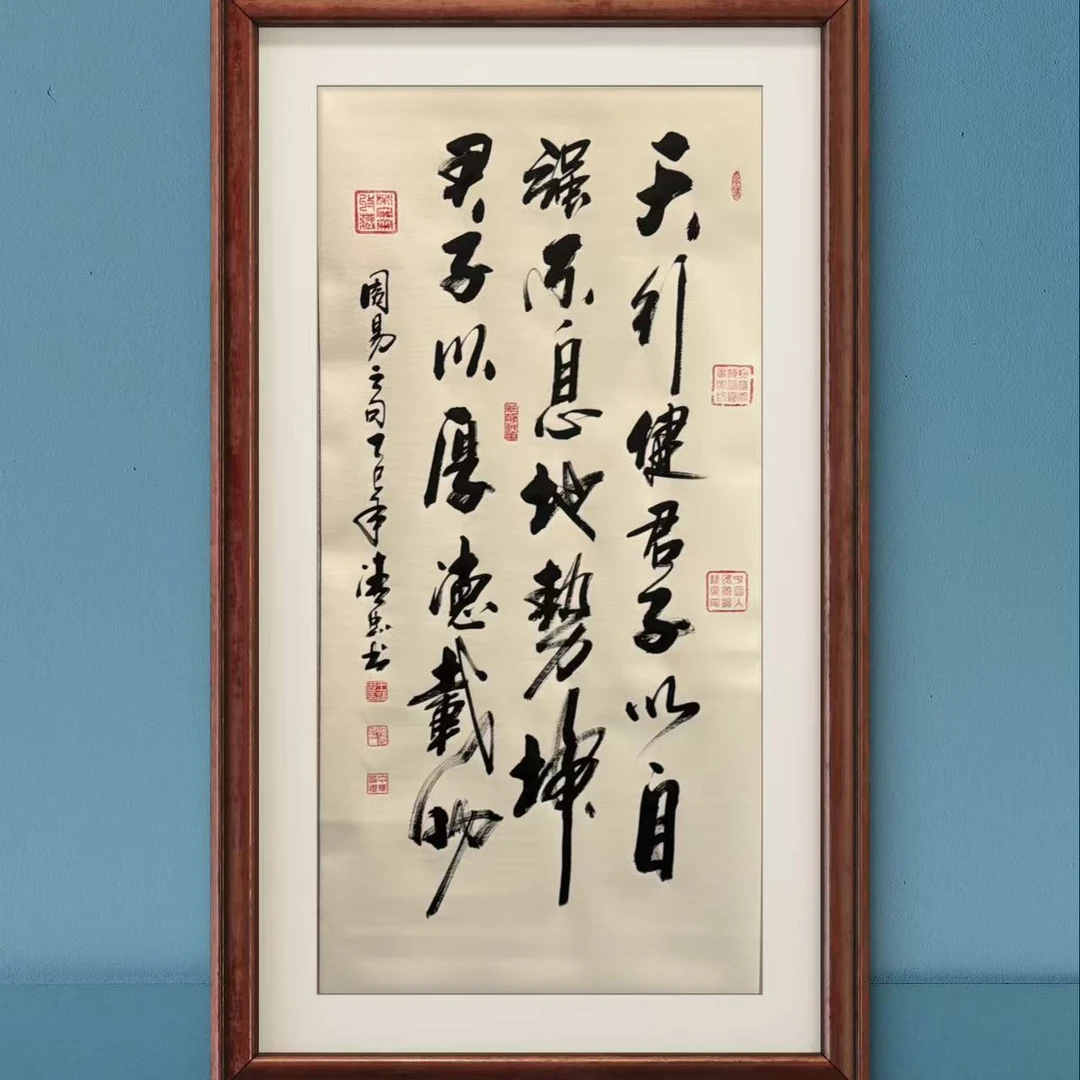 天行健君子以自
强不息地势坤
君子以厚德载物
周易之句乙巳年